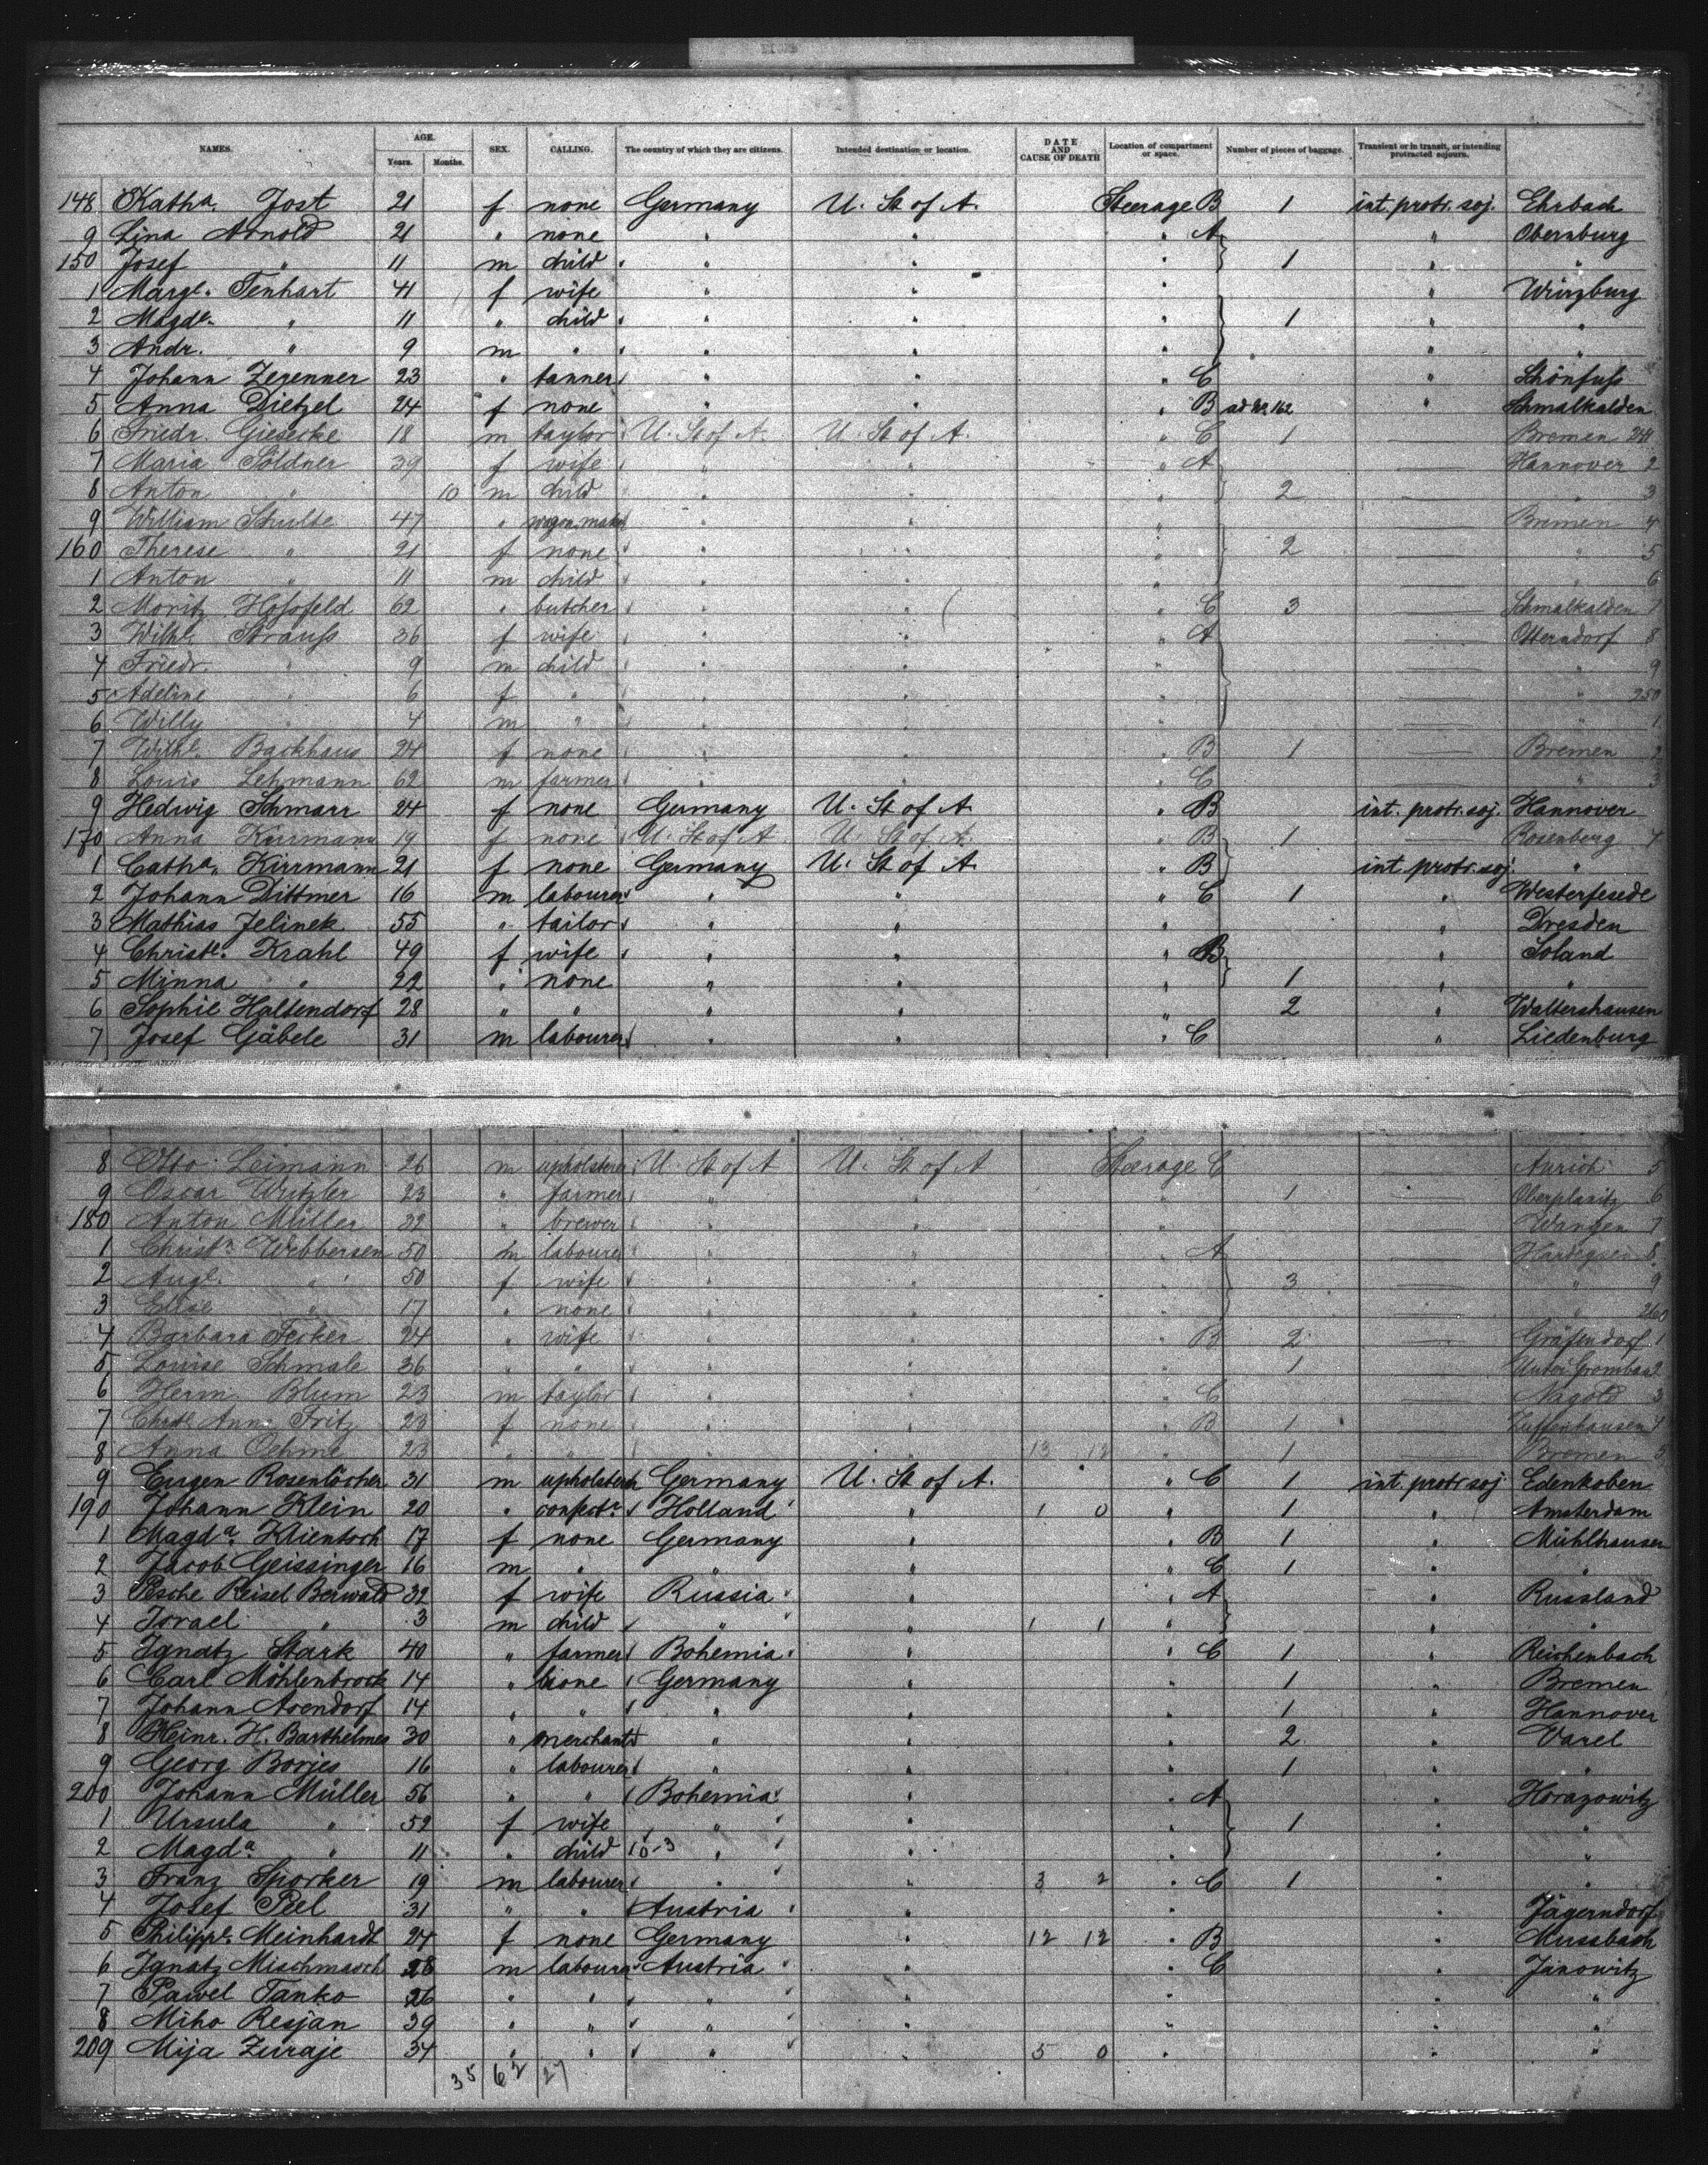 NAMES. AGE. Years. Months. SEX. CALLING. The country of which they are citizens. Intended destination or location. DATE AND CAUSE OF DEATH Location of compartment or space. Number of pieces of baggage. Transient or in transit, or intending protracted sojourn.
148 Katha. Jost 21 f none Germany U. St of A. Steerage B 1 int. protr. soj. Ehrbach
9 Lina Arnold 21 " none " " " A " Obernburg
150 Josef " 11 m child " " " 1 " "
1 Marge. Tenhart 41 f wife " " " " Würzburg
2 Magde. " 11 " child " " " 1 " "
3 Andr. " 9 m " " " " " "
4 Johann Zegenner 23 " tanner " " " C " Schönfuss
5 Anna Dietzel 24 f none " " " B ad No 162 " Schmalkalden
6 Friedr. Giesecke 18 m taylor U. St of A. U. St of A. " C 1 — Bremen 241
7 Maria Söldner 39 f wife " " " A — Hannover 2
8 Anton " 10 m child " " " 2 — " 3
9 William Schulte 47 " wagon maker " " " — Bremen 4
160 Therese " 21 f none " " " 2 — " 5
1 Anton " 11 m child " " " — " 6
2 Moritz Hossfeld 62 " butcher " " " C 3 — Schmalkalden 7
3 Wilhe. Strauss 36 f wife " " " A — Otterndorf 8
4 Friedr. " 9 m child " " " — " 9
5 Adeline " 6 f " " " " — " 250
6 Willy " 4 m " " " " — " 1
7 Wilhe. Backhaus 24 f none " " " B 1 — Bremen 2
8 Louis Lehmann 62 m farmer " " " C " 3
9 Hedwig Schmarr 24 f none Germany U. St of A. " B int. protr. soj. Hannover
170 Anna Kirrmann 19 f none U. St of A U. St of A. " B 1 — Rosenberg 4
1 Catha. Kirrmann 21 f none Germany U. St of A. " B int. protr. soj. "
2 Johann Dittmer 16 m labourer " " " C 1 " Westerfesede
3 Mathias Jelinek 55 " tailor " " " " Dresden
4 Christe. Krahl 49 f wife " " " B " Soland
5 Minna " 22 " none " " " 1 " "
6 Sophie Haltendorf 28 " " " " " 2 " Waltershausen
7 Josef Gäbele 31 m labourer " " " C " Liedenburg
8 Otto Leimann 26 m upholsterer U. St of A U. St of A Steerage C — Aurich 5
9 Oscar Writzler 23 " farmer " " " 1 — Oberplanitz 6
180 Anton Müller 32 " brewer " " " — Wangen 7
1 Christn. Webbersen 50 m labourer " " " A — Hardegsen 8
2 Auge. " 50 f wife " " " 3 — " 9
3 Elise " 17 " none " " " — " 260
4 Barbara Fecker 24 " wife " " " B 2 — Gräfendorf 1
5 Louise Schmale 36 " " " " " 1 — 2
6 Herm. Blum 23 m taylor " " " C — Nagold 3
7 Anna Fritz 23 f none " " " B 1 — Zuffenhausen 4
8 Anna Oehme 23 " " " " 13 12 " 1 — Bremen 5
9 Eugen Rosenlöcher 31 m upholsterer Germany U. St of A. " C 1 int. protr. soj Edenkoben
190 Johann Klein 20 " confectr. Holland " 1 0 " 1 " Amsterdam
1 Magda. Klientsch 17 f none Germany " B 1 " Mühlhausen
2 Jacob Geissinger 16 m " " " " C 1 " "
3 Pesche Reisel Berwald 32 f wife Russia " " A " Russland
4 Israel " 3 m child " " 1 1 " " "
5 Ignatz Stark 40 " farmer Bohemia " " C 1 " Reichenbach
6 Carl Möhlenbrock 14 " none Germany " " 1 " Bremen
7 Johann Arendorf 14 " " " " " 1 " Hannover
8 Heinr. H. Barthelmes 30 " merchant " " " 2 " Varel
9 Georg Borjes 16 " labourer " " " 1 " "
200 Johann Müller 56 " " Bohemia " " A " Horazowitz
1 Ursula " 52 f wife " " " 1 " "
2 Magda. " 11 " child 10-3 " " " " "
3 Franz Sporker 19 m labourer " " 3 2 " C 1 " "
4 Josef Peel 31 " " Austria " " " Jägerndorf
5 Philippe. Meinhardt 24 f none Germany " 12 12 " B " Mussbach
6 Ignatz Mischmasch 28 m labourer Austria " " C " Janowitz
7 Pawel Tanko 26 " " " " " " "
8 Miho Resjan 39 " " " " " " "
209 Mija Zuraje 34 " " " " 5 0 " " "
35 62 27